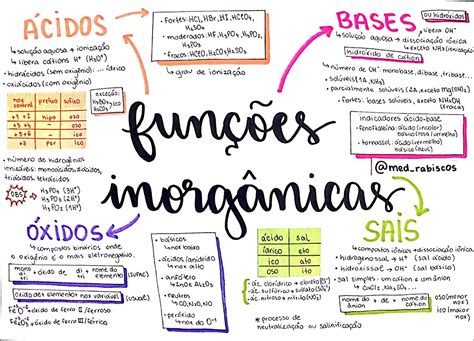 ÁCIDOS
• solução aquosa → ionização
↳ libera cátions H⁺ (H₃O⁺)
• hidrácidos (sem oxigênio) ... ídrico
• oxiácidos (com oxigênio) ...
nox central prefixo sufixo
+1 +2 hipo oso
+3 +4 - oso
+5 +6 - ico
+7 per ico
exceção:
H₃BO₃
ico
• número de hidrogênios
ionizáveis: monoácidos, diácidos,
triácidos, tetrácidos
OBS!
H₃PO₄ (3H⁺)
H₃PO₃ (2H⁺)
H₃PO₂ (1H⁺)
• fortes: HCl, HBr, HI, HClO₄
• moderados: HF,
• fracos:
↳ grau de ionização
BASES
ou hidróxidos
• solução aquosa → dissociação iônica
↳ libera OH⁻
↳ exceto NH₃ (ionização)
hidróxido de cátion
• número de OH⁻: monobase, dibase, tribase...
• solúveis (1A, NH₄)
• parcialmente solúveis (2A, exceto Mg(OH)₂)
• fortes: bases solúveis, exceto NH₄OH
indicadores ácido-base
• fenolftaleína: ácido (incolor)
básico (vermelho)
• tornassol: ácido (vermelho)
básico (azul)
@med_rabiscos
funções
inorgânicas
ÓXIDOS
• compostos binários onde
o oxigênio é o mais eletronegativo.
mono di tri + óxido de + di tri + nome do elemento (IUPAC)
óxido de + elemento + nox variável (usual)
Fe⁺²O⁻² → óxido de ferro II / ferroso
Fe₂⁺³O₃⁻² → óxido de ferro III / férrico
• básicos
↳ nox baixo
• ácidos/anidrido
↳ nox alto
• anfótero
• neutros
↳ CO, N₂O, NO
• peróxido
↳ nox do O⁻¹
ácido sal
ídrico eto
ico ato
oso ito
• ác. clorídrico → cloreto (Cl⁻)
• ác. sulfúrico → sulfato (SO₄²⁻)
• ác. nitroso → nitrito (NO₂⁻)
→ processo de
neutralização ou salinificação
SAIS
↳ compostos iônicos → dissociação iônica
• hidrogenossal → H⁺ (sal ácido)
• hidroxissal → OH⁻ (sal básico)
• sal simples: um cátion e um ânion
↳ CaCl₂, Na₂SO₄...
nome do ânion + de + nome do cátion
oso (menor nox)
ico (maior nox)